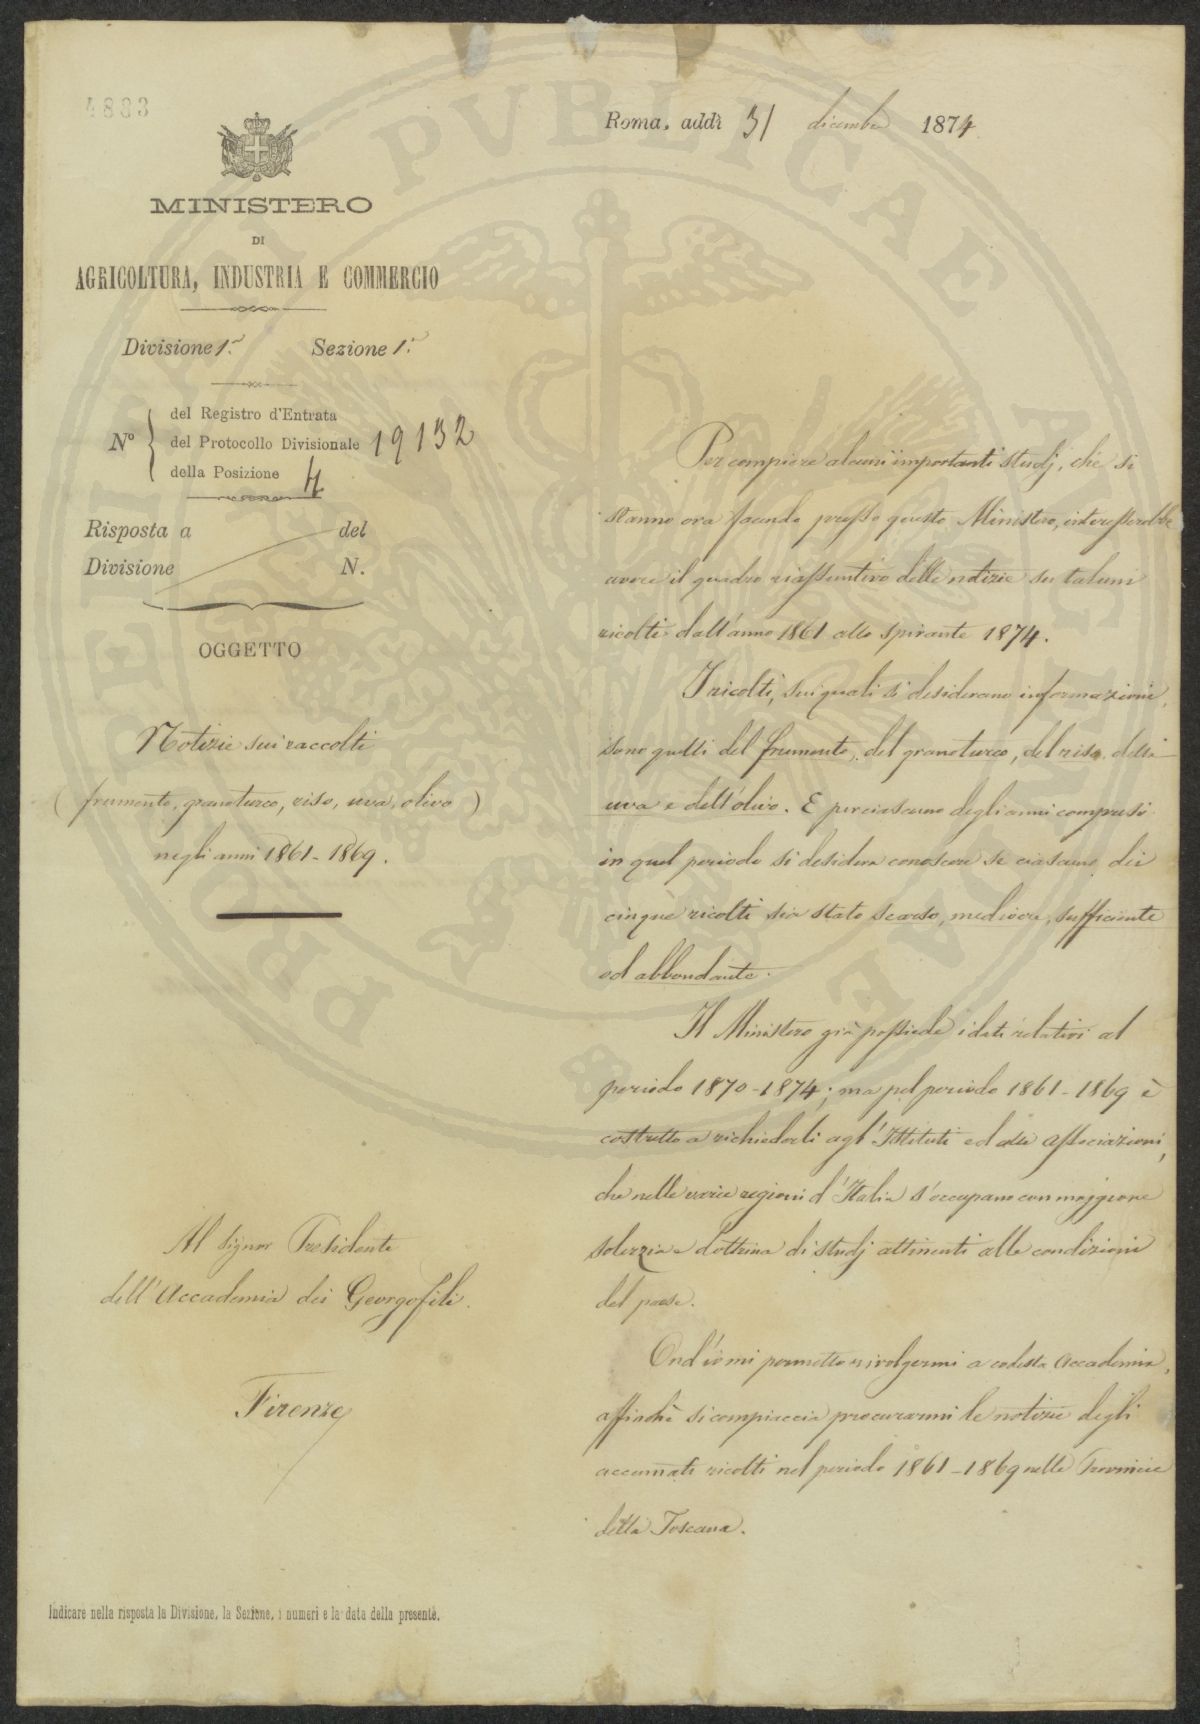 4883
Roma, addì 31 dicembre 1874
MINISTERO
DI
AGRICOLTURA, INDUSTRIA E COMMERCIO
Divisione 1.ª Sezione 1.ª
N.º
del Registro d'Entrata
del Protocollo Divisionale 19132
della Posizione 4
Risposta a del
Divisione N.
OGGETTO
Notizie sui raccolti
(frumento, granoturco, riso, uva, olivo)
negli anni 1861-1869.
Al Signor Presidente
dell'Accademia dei Georgofili.
Firenze
Per compiere alcuni importanti studj, che si
stanno ora facendo presso questo Ministero, interesserebbe
avere il quadro riassuntivo delle notizie su taluni
ricolti dall'anno 1861 allo spirante 1874.
I ricolti, sui quali si desiderano informazioni,
sono quelli del frumento, del granoturco, del riso, della
uva e dell'olivo. E per ciascuno degli anni compresi
in quel periodo si desidera conoscere se ciascuno dei
cinque ricolti sia stato scarso, mediocre, sufficiente
od abbondante.
Il Ministero già possiede i dati relativi al
periodo 1870-1874; ma pel periodo 1861-1869 è
costretto a richiederli agl'Istituti ed alle associazioni,
che nelle varie regioni d'Italia s'occupano con maggiore
solerzia e dottrina di studj attinenti alle condizioni
del paese.
Ond'io mi permetto rivolgermi a codesta Accademia,
affinchè si compiaccia procurarmi le notizie degli
accennati ricolti nel periodo 1861-1869 nelle Provincie
della Toscana.
Indicare nella risposta la Divisione, la Sezione, i numeri e la data della presente.
PVBLICAE